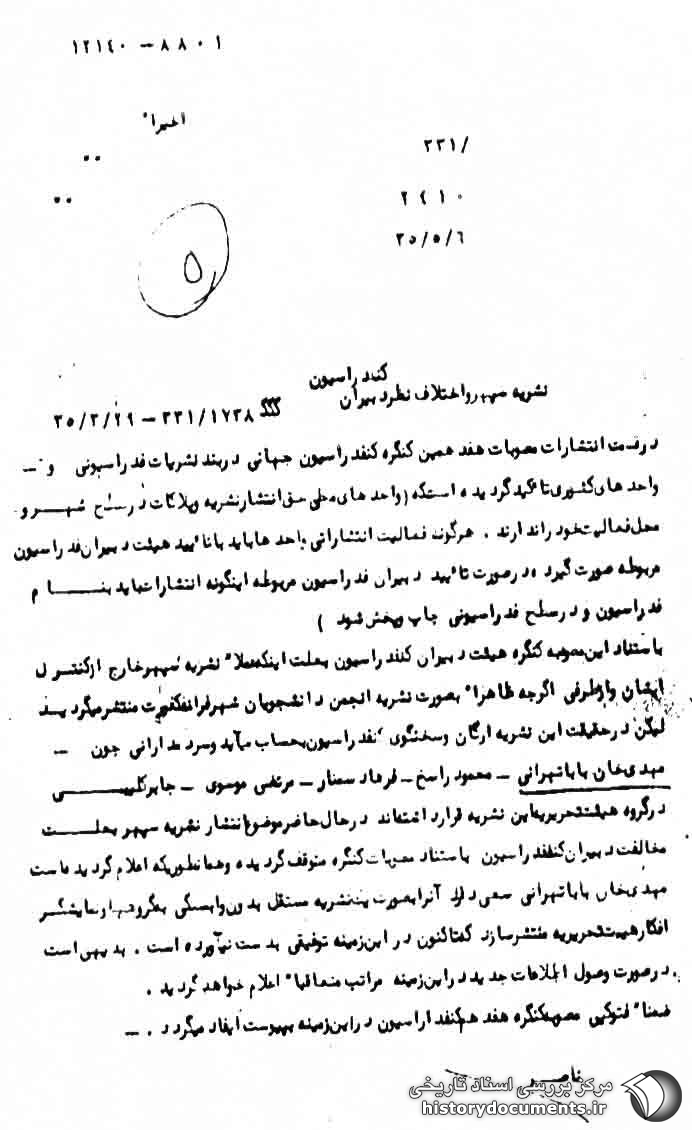 ۱۲۱۴۰ – ۸۸۰۱
اخیرا"
۳۳۱/
۲۴۱۰
۳۵/۵/۶
۵
کنفدراسیون
نشریه سپهر و اختلاف نظر دبیران
۳۳۱/۱۷۳۸ – ۳۵/۳/۲۹
در قسمت انتشارات مصوبات هفدهمین کنگره کنفدراسیون جهانی در بند نشریات فدراسیونی و –
واحدهای کشوری تاکید گردیده است که (واحدهای محلی حق انتشار نشریه و پلاکات در سطح شهر و
محل فعالیت خود را ندارند . هرگونه فعالیت انتشاراتی واحدها باید با تائید هیئت دبیران فدراسیون
مربوطه صورت گیرد و در صورت تائید دبیران فدراسیون مربوطه اینگونه انتشارات باید بنام
فدراسیون و در سطح فدراسیونی چاپ و پخش شود )
با استناد این مصوبه کنگره هیئت دبیران کنفدراسیون بعلت اینکه عملا" نشریه سپهر خارج از کنترل
ایشان و از طرفی اگرچه ظاهرا" بصورت نشریه انجمن دانشجویان شهر فرانکفورت منتشر میگردید
لیکن در حقیقت این نشریه ارگان و سخنگوی کنفدراسیون بحساب میآید و سردمدارانی چون –
مهدی خان بابا تهرانی – محمود راسخ – فرهاد سمنار – مرتضی موسوی – جابر کلیبی
در گروه هیئت تحریریه این نشریه قرار داشته اند در حال حاضر موضوع انتشار نشریه سپهر بعلت
مخالفت دبیران کنفدراسیون با استناد مصوبات کنگره متوقف گردیده و همانطوریکه اعلام گردیده است
مهدی خان بابا تهرانی سعی دارد آنرا بصورت یک نشریه مستقل بدون وابستگی به گروهها و نمایشگر
افکار هیئت تحریریه منتشر سازد که تاکنون در این زمینه توفیقی بدست نیآورده است . بدیهی است
در صورت وصول اطلاعات جدید در این زمینه مراتب متعاقبا" اعلام خواهد گردید .
ضمنا" فتوکپی مصوبه کنگره هفدهم کنفدراسیون در این زمینه به پیوست ایفاد میگردد . –
ناصر
مرکز بررسی اسناد تاریخی
historydocuments.ir